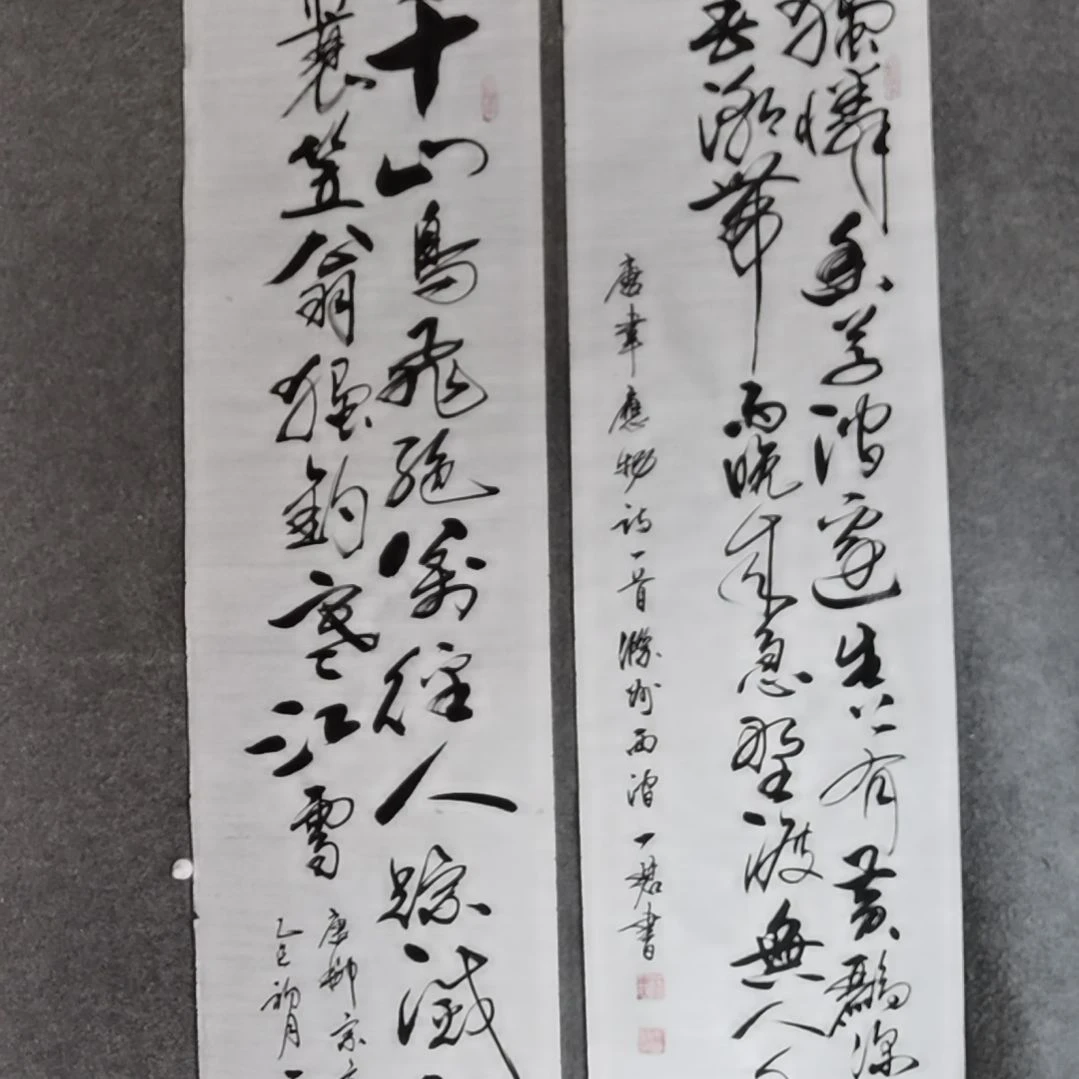 獨憐幽草澗邊生上有黃鸝深
春潮帶雨晚來急野渡無人
唐韋應物詩一首滁州西澗一書
千山鳥飛絕萬徑人踪滅
蓑笠翁獨釣寒江雪
唐柳宗
乙巳初月